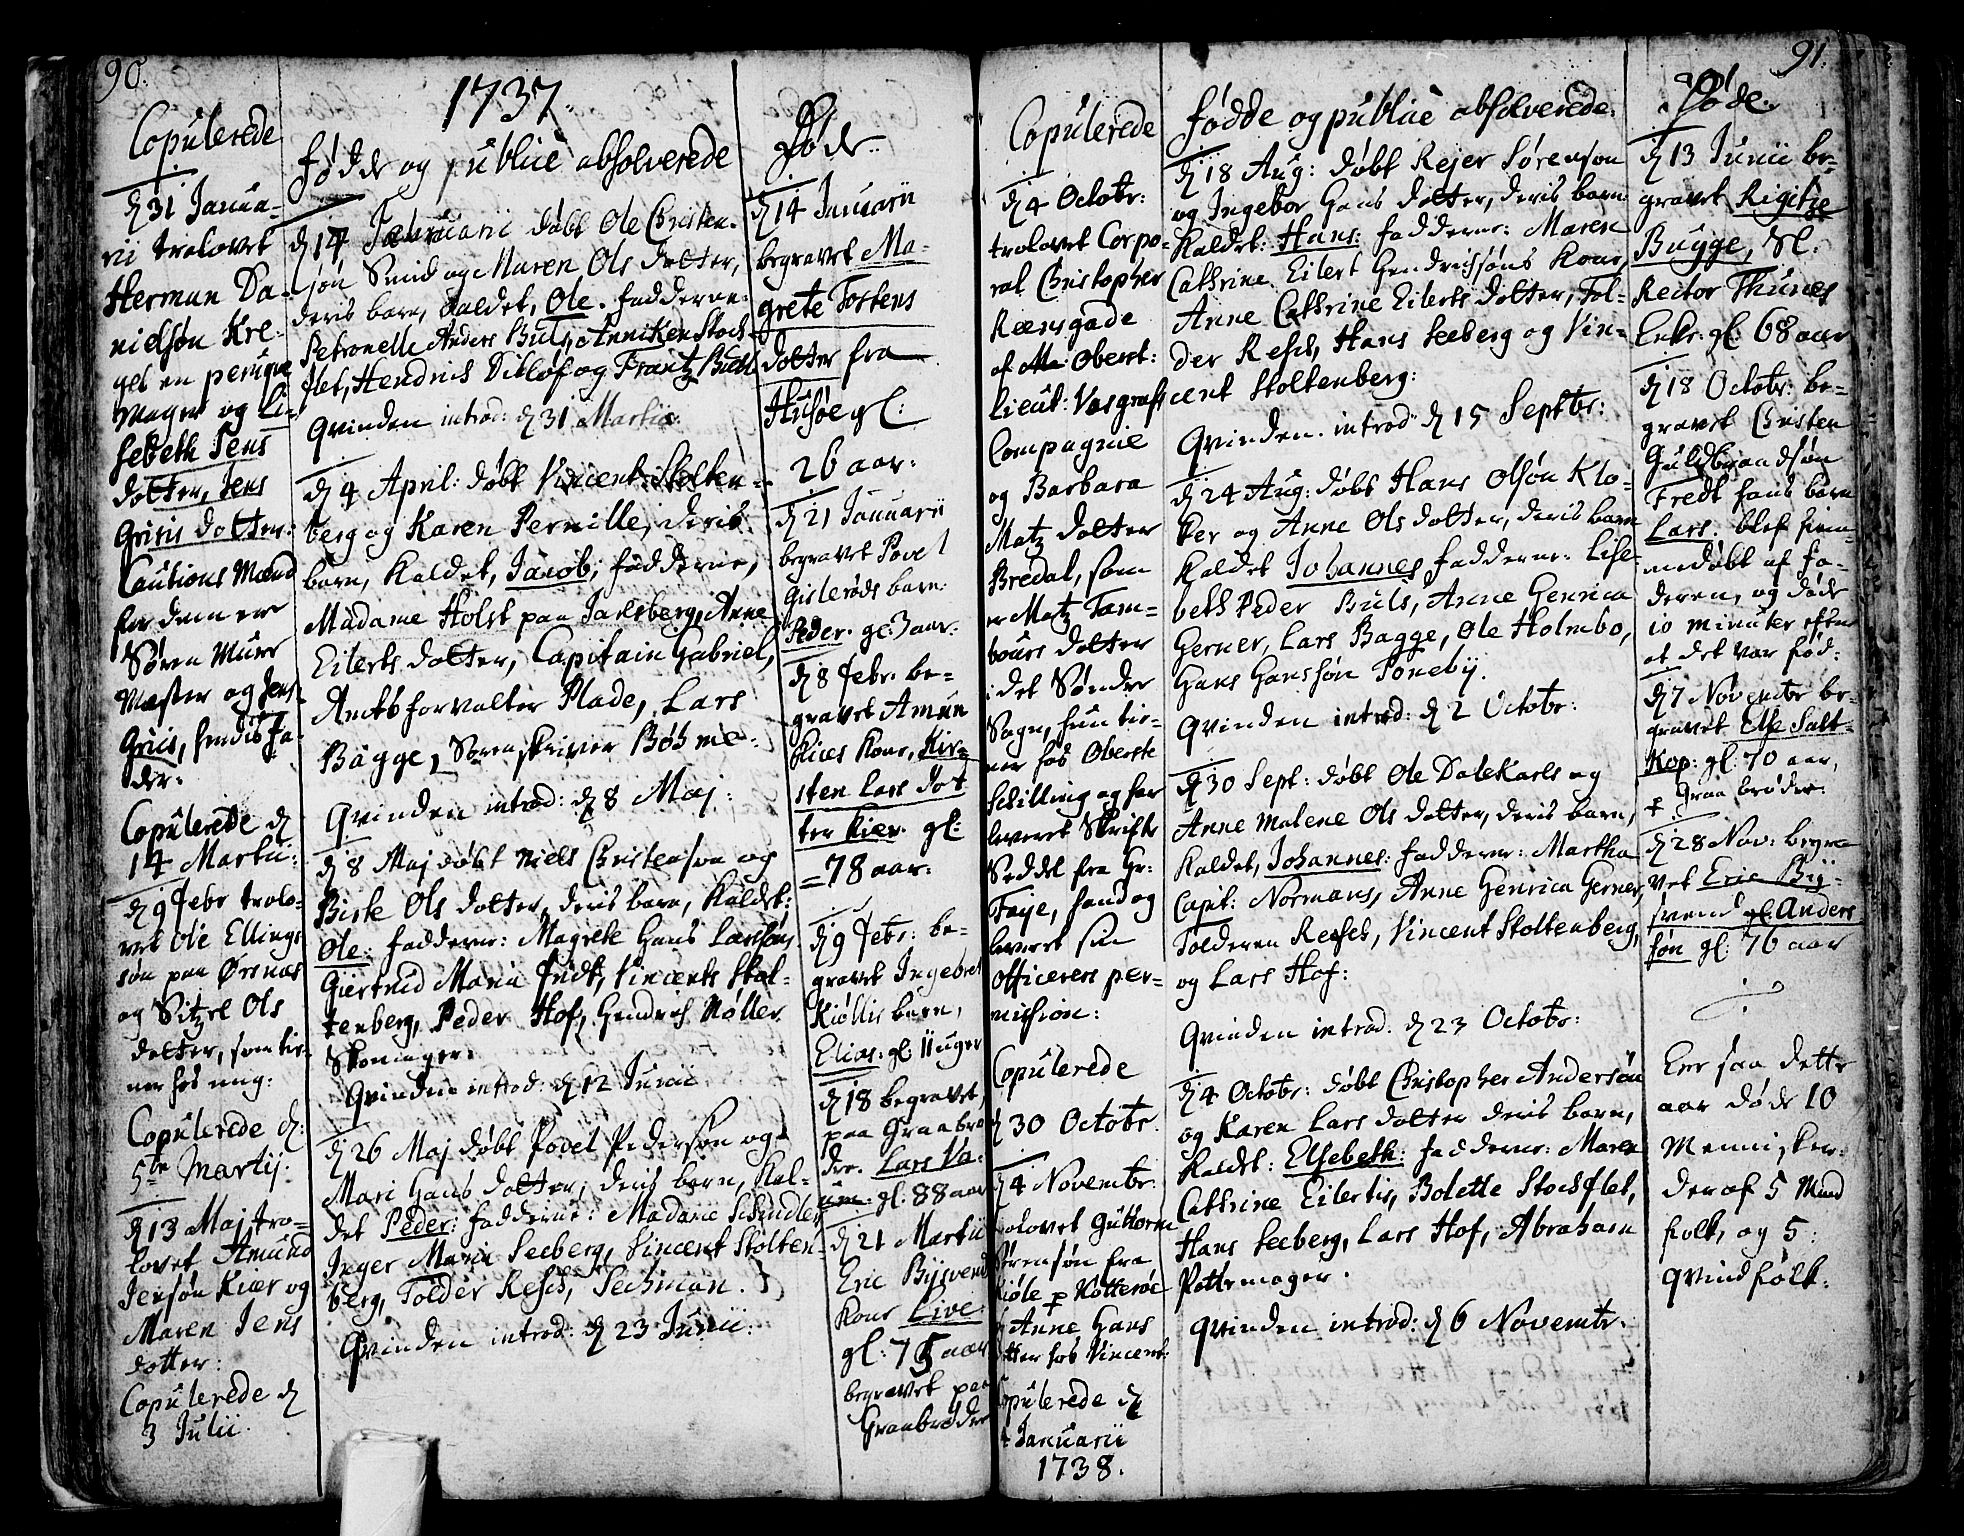 90.
1737.
Copulerede
d 31 Janua-
rii trolovet
Herman Da-
nielsøn Kre-
gel en peruqve
mager og Li-
sebeth Jens
dotter, Jens
Griis dotter:
Cautions Mænd
for dem er
Søren Muur
Mæster og Jens
Griis, hendis Fa-
der.
Copulerede d
14 Martii:
d 9 Febr trolo-
vet Ole Ellings
søn paa Ørsnæs
og Sitzel Ols
dotter, som tie-
ner hos mig:
Copulerede d:
5te Martij:
d 13 Maj tro-
lovet Amund
Jensøn Kiær og
Maren Jens
dotter:
Copulerede d
3 Julii.
Fødde og publice absolverede
d 14 Januarii døbt Ole Christen-
søn Smid og Maren Ols dotter,
deris barn, kaldet, Ole. Fadderne:
Petronelle Anders Buls, Anniken Stoch-
flet, Hendrich Ditløf og Frantz Buhl
Qvinden introd: d 31 Martii:
d 4 April: døbt Vincent Stolten-
berg og Karen Pernille, deris
barn, kaldet, Jacob; fadderne,
Madame Holst paa Jarlsberg, Anne
Eilerts dotter, Capitain Gabriel,
Amtsforvalter Plade, Lars
Bagge, Sorenskriver Bøhme:
Qvinden introd: d 8 Maj:
d 8 Maj døbt Niels Christensøn og
Birte Ols dotter, deris barn, kaldet:
Ole: fadderne: Magrete Hans Larsøns
Giertrud Maria Judt, Vincents Stol-
tenberg, Peder Hof, Hendrich Møller
Skoninger.
Qvinden introd: d 12 Junii
d 26 Maj døbt Povel Pedersøn og
Mari Hans dotter, deris barn, kal-
det Peder: fadderne: Madame Schindler
Inger Maria Seeberg, Vincent Stolten-
berg, Tolder Resch, Sechman.
Qvinden introd: d 23 Junii:
Døde.
d 14 Januarii
begravet Ma-
grete Tostens
dotter fra
Husøe gl:
26 aar:
d 21 Januarii
begravet Povel
Gislerøds barn:
Peder. gl: 3 aar.
d 8 Febr: be-
gravet Amun
Kiærs Kone, Kir-
sten Lars dot
ter Kier. gl:
= 78 aar.
d 9 Febr: be-
gravet Ingebret
Kiøllis barn,
Elias: gl: 11 uger
d 18 begravet,
paa Graabrø
dre. Lars Va-
um: gl: 88 aar
d 21 Martii
Eric Bysvend
Kone Live
gl: 75 aar
begravet paa
Graabrødre
91.
Copulerede
d 4 Octobr:
trolovet Corpo-
ral Christopher
Reensgade
af Oberst:
Lieut: Vosgrafs
Compagnie
og Barbara
Matz dotter
Bredal, som
er Matz Tam-
bours dotter
i det Søndre
Sogn, hun tie-
ner hos Oberste
Schilling og har
leveret Skrifte
Seddel fra Hr:
Faye, hand og
leveret sin
Officerers per-
mission:
Copulerede
d 30 Octobr.
d 4 Novembr:
trolovet Guttorm
Sørensøn fra
Kiøle p Nøtterøe
og Anne Hans
dotter hos Vincent:
Copulerede d
Januarii
1738.
Fødde og publice absolverede.
d 18 Aug: døbt Rejer Sørensøn
og Ingebor Hans dotter, deris barn
kaldet: Hans: fadderne: Maren
Cathrine Eilert Hendrichsøns Kone,
Anne Cathrine Eilerts dotter, Tol-
der Resch, Hans Seeberg og Vin-
cent Stoltenberg:
Qvinden introd d 15 Septbr:
d 24 Aug: døbt Hans Olsøn Klo-
ker og Anne Ols dotter, deris barn
kaldet Johannes fadderne: Lise-
beth Peder Buls, Anne Henrica
Gerner, Lars Bagge, Ole Holmbo,
Hans Hanssøn Toneby.
Qvinden introd: d 2 Octobr:
d 30 Sept: døbt Ole Dalekarls og
Anne Malene Ols dotter, deris barn,
kaldet, Johannes: fadderne: Martha
Capt: Normans, Anne Henrica Gerner,
Tolderen Resch, Vincent Stoltenberg,
og Lars Hof:
Qvinden introd. d 23 Octobr:
d 4 Octobr: døbt Christopher Andersøn
og Karen Lars dotter deris barn,
kaldet: Elsebeth: fadderne: Maren
Cathrine Eilertis, Bolette Stochflet,
Hans Seeberg, Lars Hof, Abraham
Pottemager.
Qvinden introd: d 6 Novembr.
Døde.
d 13 Junii be-
gravet Rigitze
Bugge, Sl:
Rector Thunes
Enke. gl: 68 aar
d 18 Octobr: be-
gravet Christen
Guldbrandsøn
Fredt hans barn
Lars. blef hiem-
medøbt af Fa-
deren, og døde
10 minuter efter
at det var fød:
d 7 Novembr be-
gravet Else Salt-
Kop: gl: 70 aar,
p Graabrødre.
d 28 Nov: begra-
vet Eric By-
svend Anders
søn gl: 76 aar
Ere saa dette
aar døde 10
Mennisker:
deraf 5 Mand
folk, og 5:
qvindfolk: